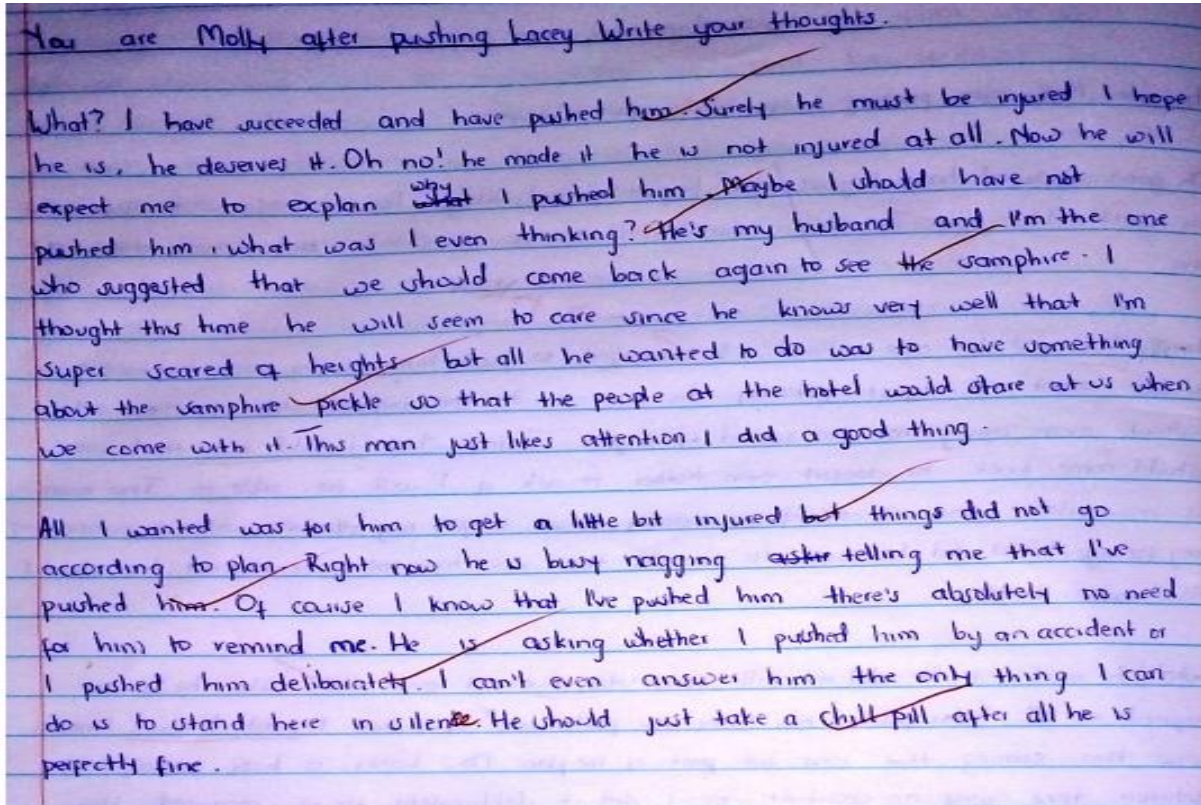 You are Molly after pushing Lacey Write your thoughts.
What? I have succeeded and have pushed him. Surely he must be injured I hope
he is, he deserves it. Oh no! he made it he is not injured at all. Now he will
expect me to explain why I pushed him. Maybe I should have not
pushed him, what was I even thinking? He's my husband and I'm the one
who suggested that we should come back again to see the samphire. I
thought this time he will seem to care since he knows very well that I'm
super scared of heights but all he wanted to do was to have something
about the samphire pickle so that the people at the hotel would stare at us when
we come with it. This man just likes attention I did a good thing.
All I wanted was for him to get a little bit injured but things did not go
according to plan. Right now he is busy nagging telling me that I've
pushed him. Of course I know that I've pushed him there's absolutely no need
for him to remind me. He is asking whether I pushed him by an accident or
I pushed him delibarately. I can't even answer him the only thing I can
do is to stand here in silence. He should just take a chill pill after all he is
perfectly fine.